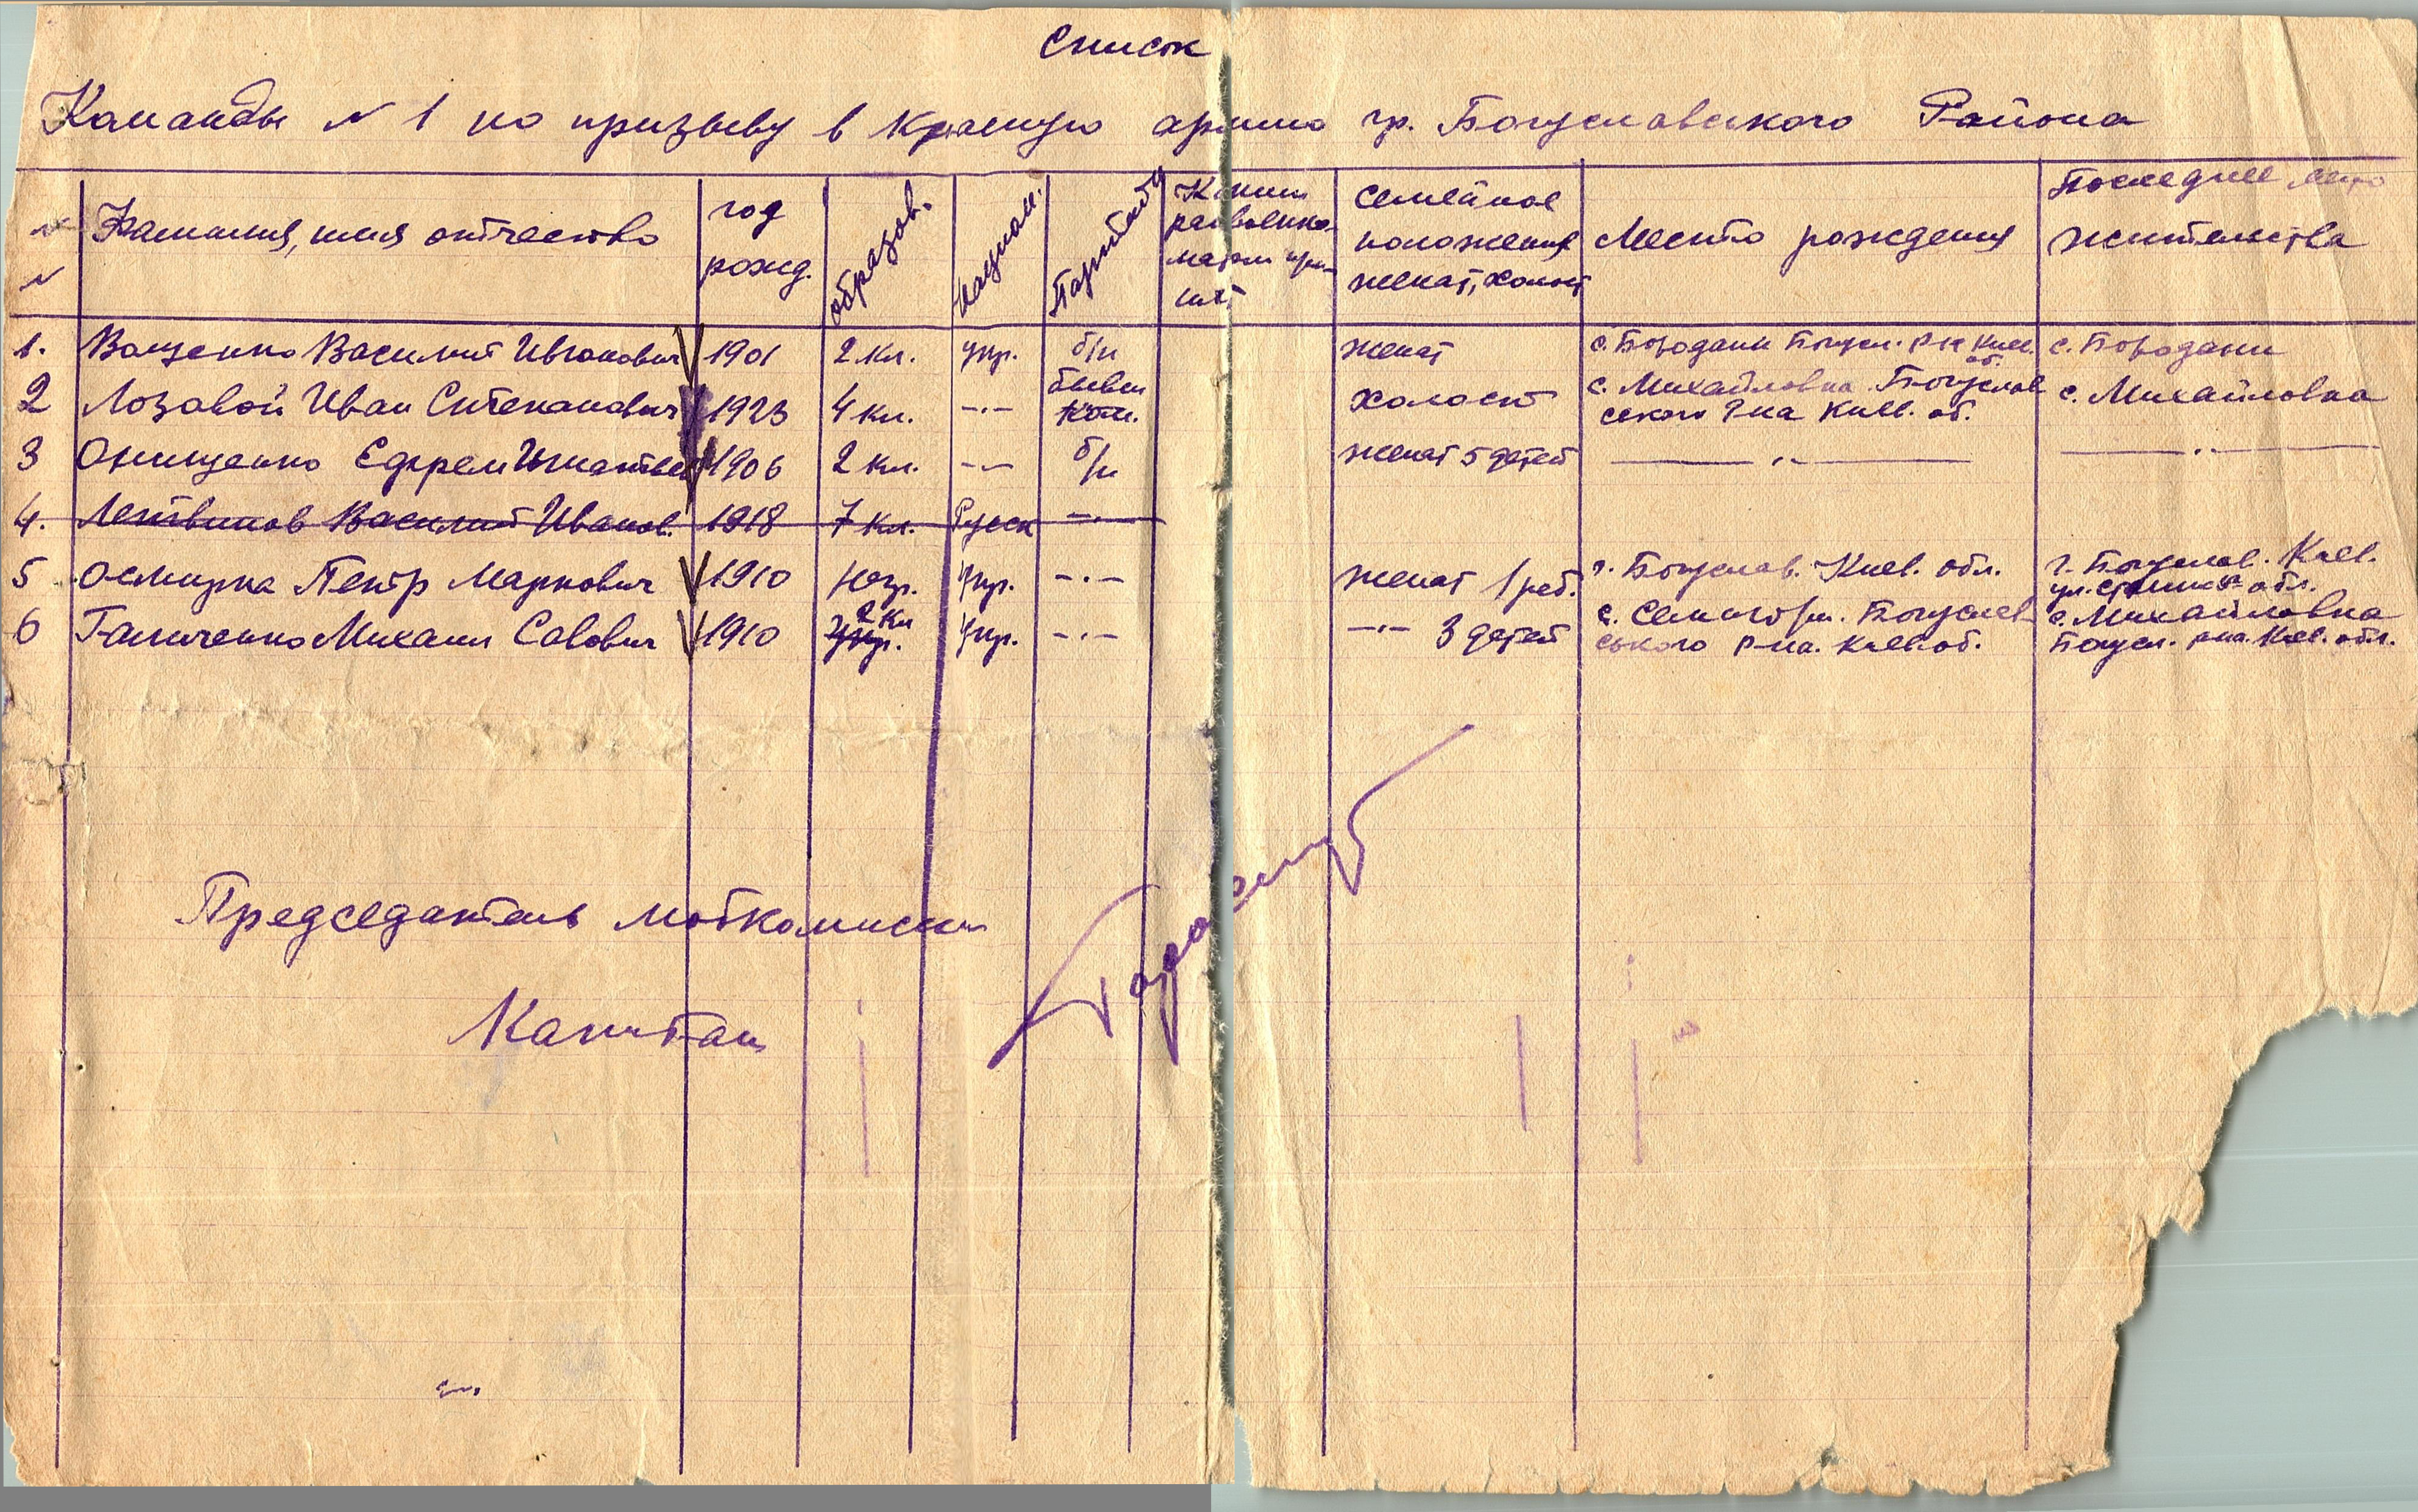 Список
Команды № 1 по призыву в Красную армию гр. Богуславского Района
№ № Фамилия, имя отчество год рожд. образов. национ. Партийн. Каким райвоенкоматом семейное положение женат, холост Место рождения Последнее место жительства
1. Ващенко Василий Иванович 1901 2 кл. укр. б/п женат с. Бородани Богусл. р-н Киев. об. с. Бородани
2 Лозавой Иван Степанович 1923 4 кл. -·- бывш ком. холост с. Михайловка Богуслав ского Р-на Киев. об. с. Михайловка
3 Онищенко Ефрем Игнатьев 1906 2 кл. -·- б/п женат 5 детей -·- -·-
4. Летвинов Василий Иванов. 1918 7 кл. Русск -·-
5 Осмирка Петр Маркович 1910 укр. -·- женат 1 реб. г. Богуслав. Киев. обл. г. Богуслав. Киев. обл.
6 Ганиченко Михаил Савович 1910 2 кл укр. -·- -·- 3 детей с. Богуслав ського р-на. Киев. об. с. Михайловка Богусл. р-на. Киев. обл.
Председатель мобкомиссии
Капитан